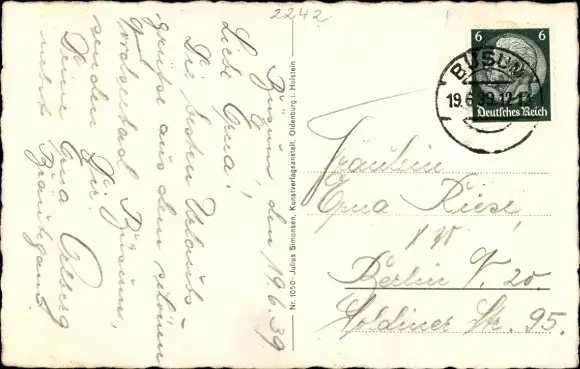 2242
Büsum, den 19.6.39
Liebe Erna!
Die besten Urlaubs
grüße aus dem schönen
Nordseebad Büsum,
senden Dir
Deine Erna
nebst Bräutigam
Nr. 1050 - Julius Simonsen, Kunstverlagsanstalt, Oldenburg i. Holstein
6 6
Deutsches Reich
BÜSUM
19.6.39.12-13
Fräulein
Erna Riese,
Berlin N. 20.
Koldiner Str. 95.